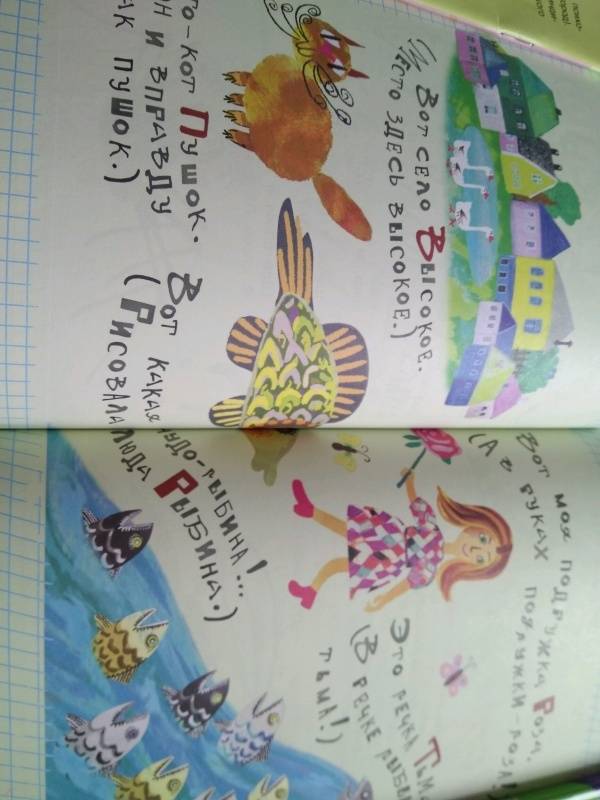 Вот село Высокое.
(Место здесь высокое.)
то-кот Пушок.
н и вправду
ак пушок.)
Вот какая чудо-рыбина!...
(Рисовала Люда Рыбина.)
Вот моя подружка Роза.
(А в руках подружки-роза!
Это речка Тьм
(В речке рыбы
тьма!)